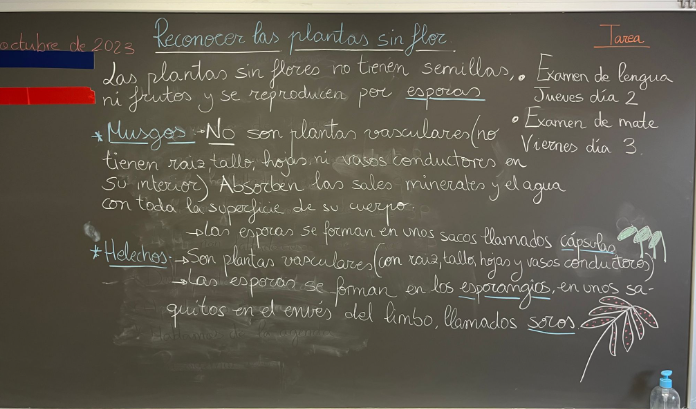 octubre de 2023
Reconocer las plantas sin flor.
Las plantas sin flores no tienen semillas,
ni frutos y se reproducen por esporas
* Musgos → No son plantas vasculares (no
tienen raiz, tallo, hojas, ni vasos conductores en
su interior) Absorben las sales minerales y el agua
con toda la superficie de su cuerpo.
→ Las esporas se forman en unos sacos llamados cápsulas
* Helechos: → Son plantas vasculares (con raiz, tallo, hojas y vasos conductores)
→ Las esporas se forman en los esporangios, en unos sa-
quitos en el envés del limbo, llamados soros.
Tarea
• Examen de lengua
Jueves día 2
• Examen de mate
Viernes día 3.